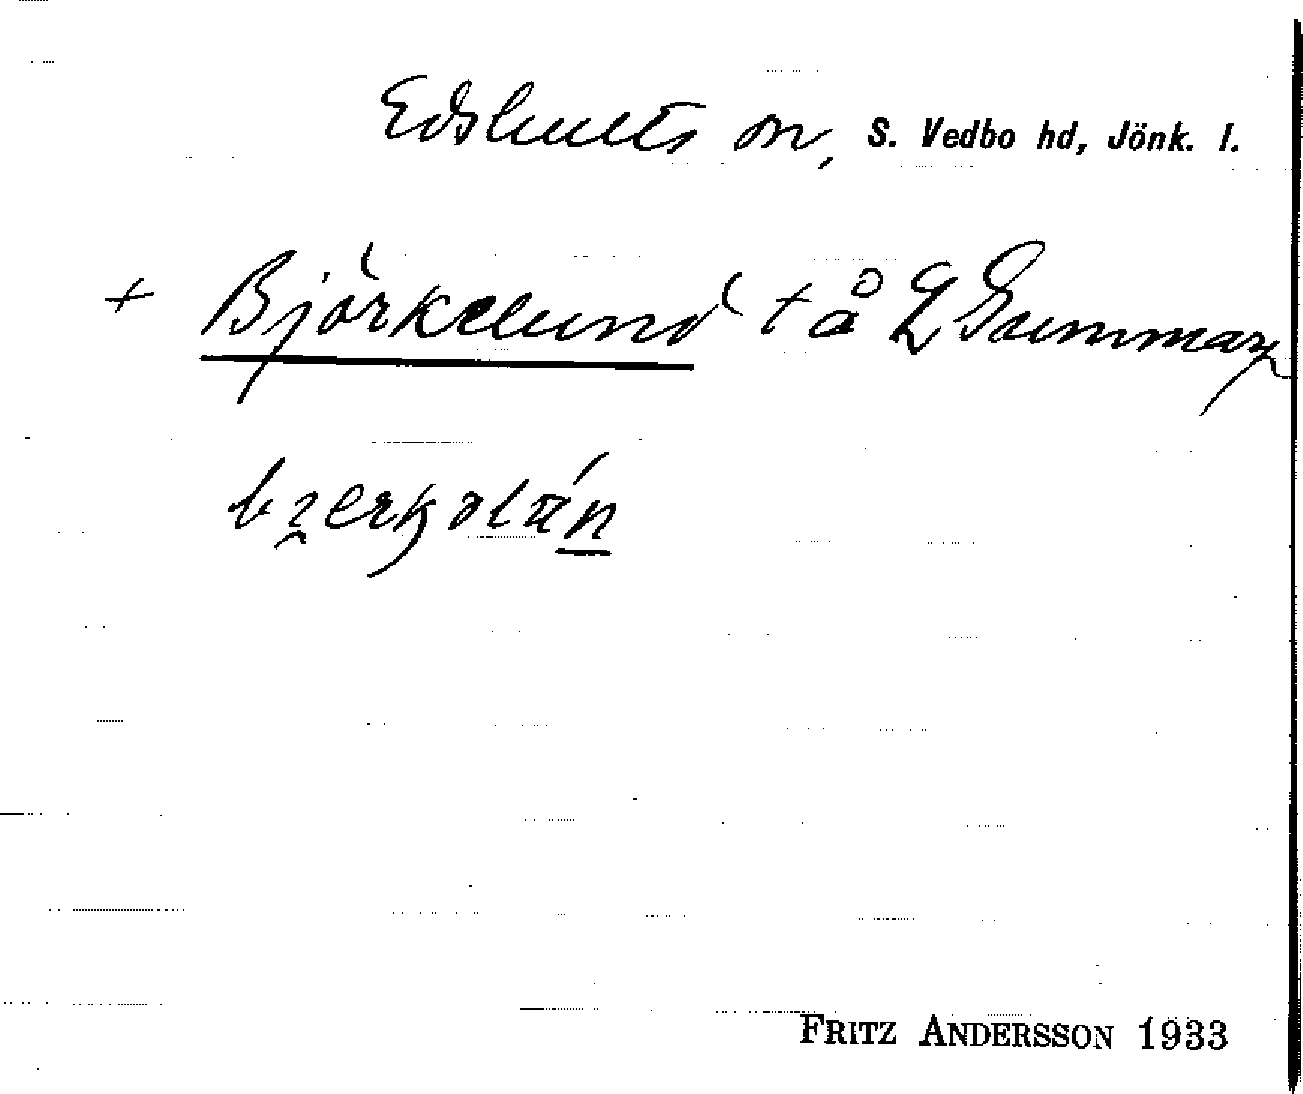 Edshults sn, S. Vedbo hd, Jönk. l.
+ Björkelund t å L Gummarp
FRITZ ANDERSSON 1933